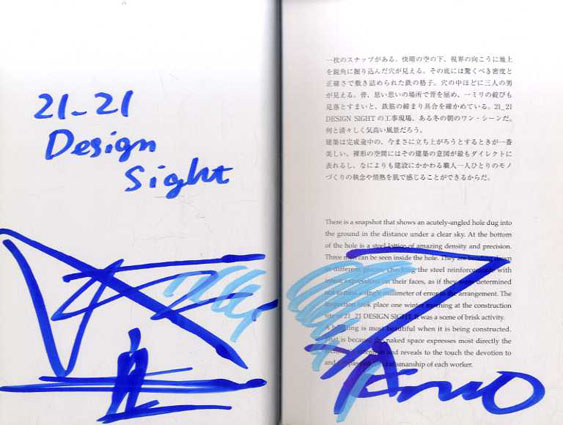 21_21
Design
Sight
一枚のスナップがある。快晴の空の下、視界の向こうに地上
を鋭角に掘り込んだ穴が見える。その底には驚くべき密度と
正確さで敷き詰められた鉄の格子。穴の中ほどに三人の男
が見える。皆、思い思いの場所で背を屈め、一ミリの びも
見落とすまいと、鉄筋の締まり具合を確かめている。21_21
DESIGN SIGHT の工事現場。ある冬の朝のワン・シーンだ。
何と清々しく気高い風景だろう。
建築は完成途中の、今まさに立ち上がろうとするときが一番
美しい。裸形の空間にはその建築の意図が最もダイレクトに
表れるし、なによりも建設にかかわる職人一人ひとりのモノ
づくりの執念や情熱を肌で感じることができるからだ。
There is a snapshot that shows an acutely-angled hole dug into
the ground in the distance under a clear sky. At the bottom
of the hole is a steel lattice of amazing density and precision.
Three men can be seen inside the hole. They are bending down
the steel reinforcement with
on their faces, as if they were determined
millimeter of error in the arrangement. The
took place one winter morning at the construction
site of 21_21 DESIGN SIGHT. It was a scene of brisk activity.
A building is most beautiful when it is being constructed.
That is because the naked space expresses most directly the
and reveals to the touch the devotion to
craftsmanship of each worker.